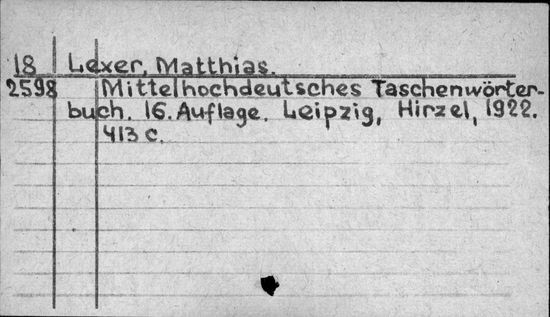 18 Lexer, Matthias.
2598 Mittelhochdeutsches Taschenwörter-
buch. 16. Auflage. Leipzig, Hirzel, 1922.
413 c.